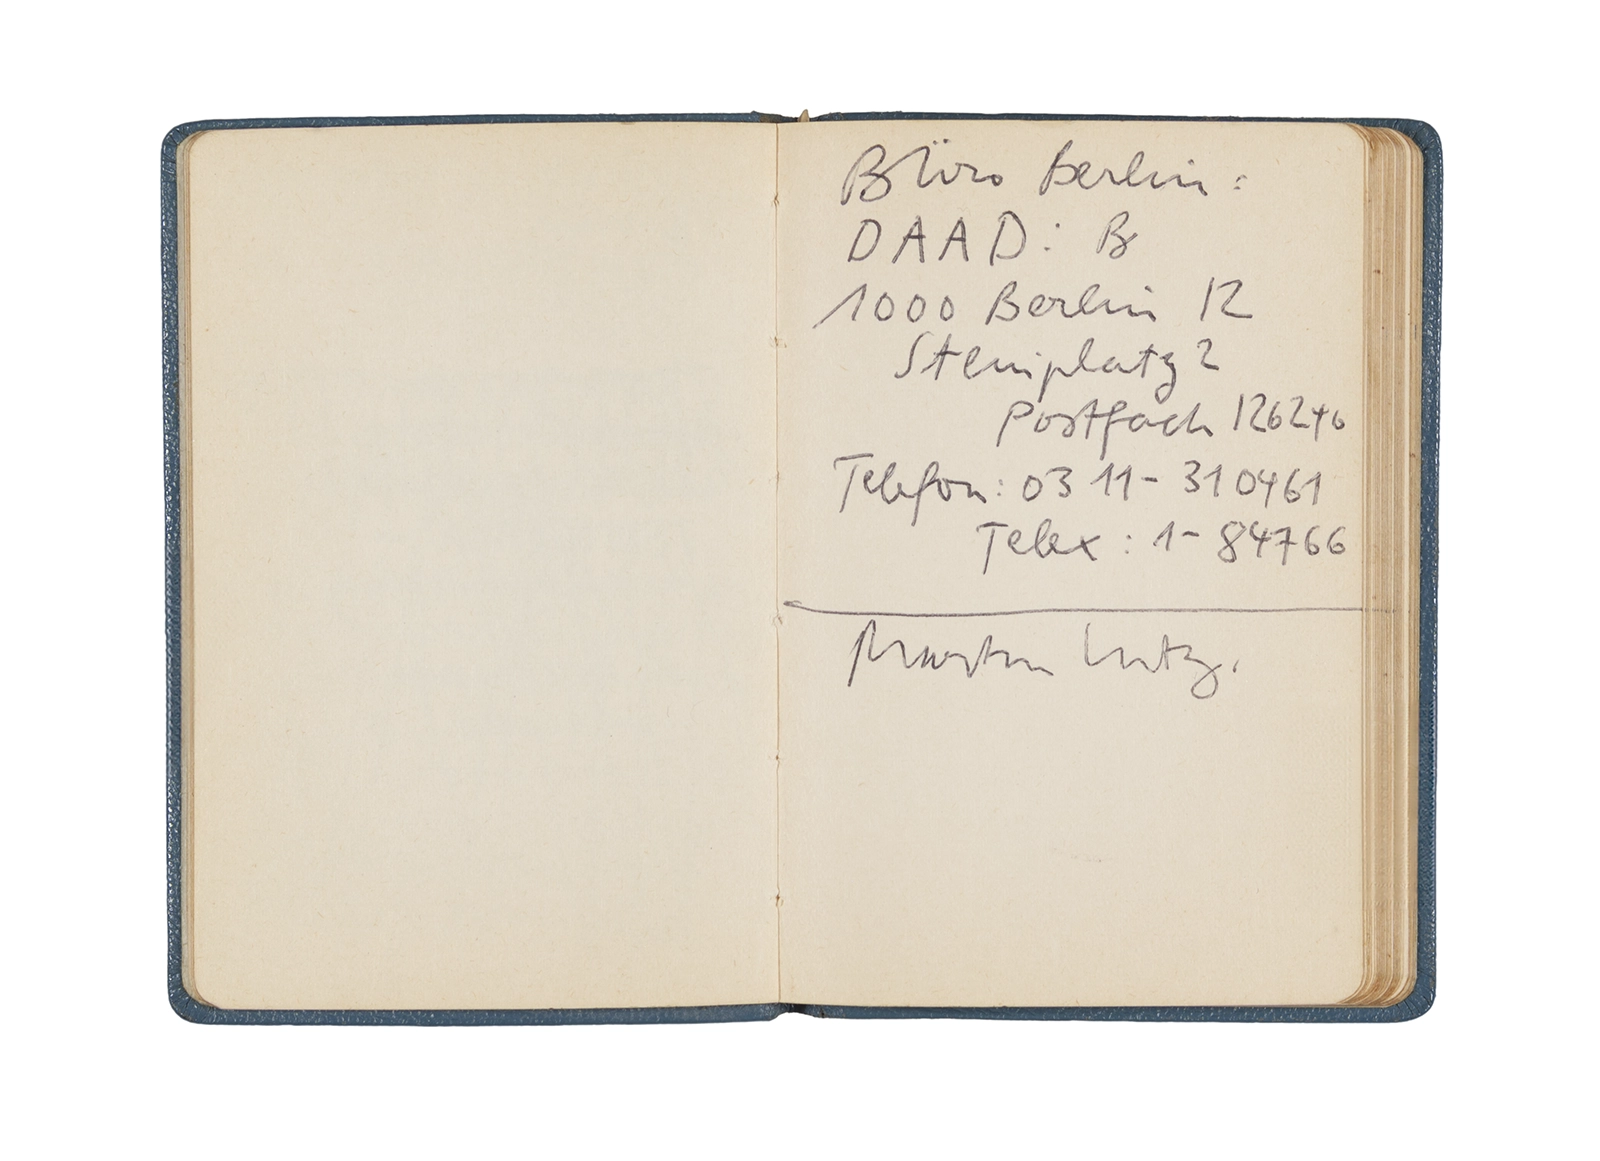 Büro Berlin:
DAAD: B
1000 Berlin 12
Steinplatz 2
Postfach 126240
Telefon: 0311-310461
Telex: 1-84766
Lutz.